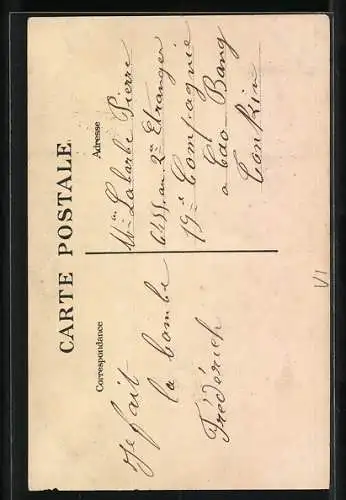 CARTE POSTALE
Correspondance
Je fait
la bombe
Fréderich
Adresse
Labarbe Pierre
6455 au 2me Etranger
19e Compagnie
a Cao Bang
Tonkin
1/1